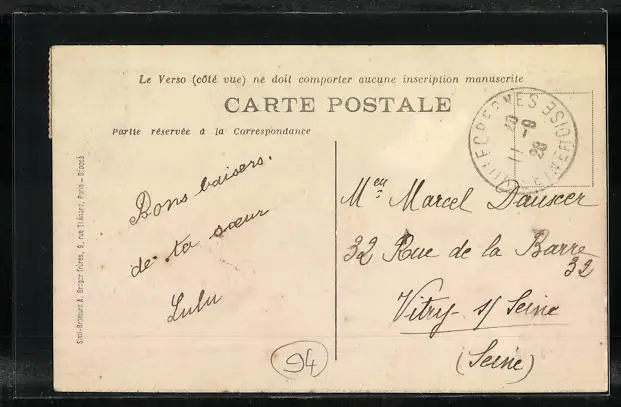 Le Verso (côté vue) ne doit comporter aucune inscription manuscrite
CARTE POSTALE
Partie réservée à la Correspondance
Bons baisers.
de ta sœur
Lulu
Men Marcel Dauscer
32 Rue de la Barre
32
Vitry s/ Seine
(Seine)
94
11 10
-9
28
SEINE ET OISE
frères, 9, rue Thénard, Paris